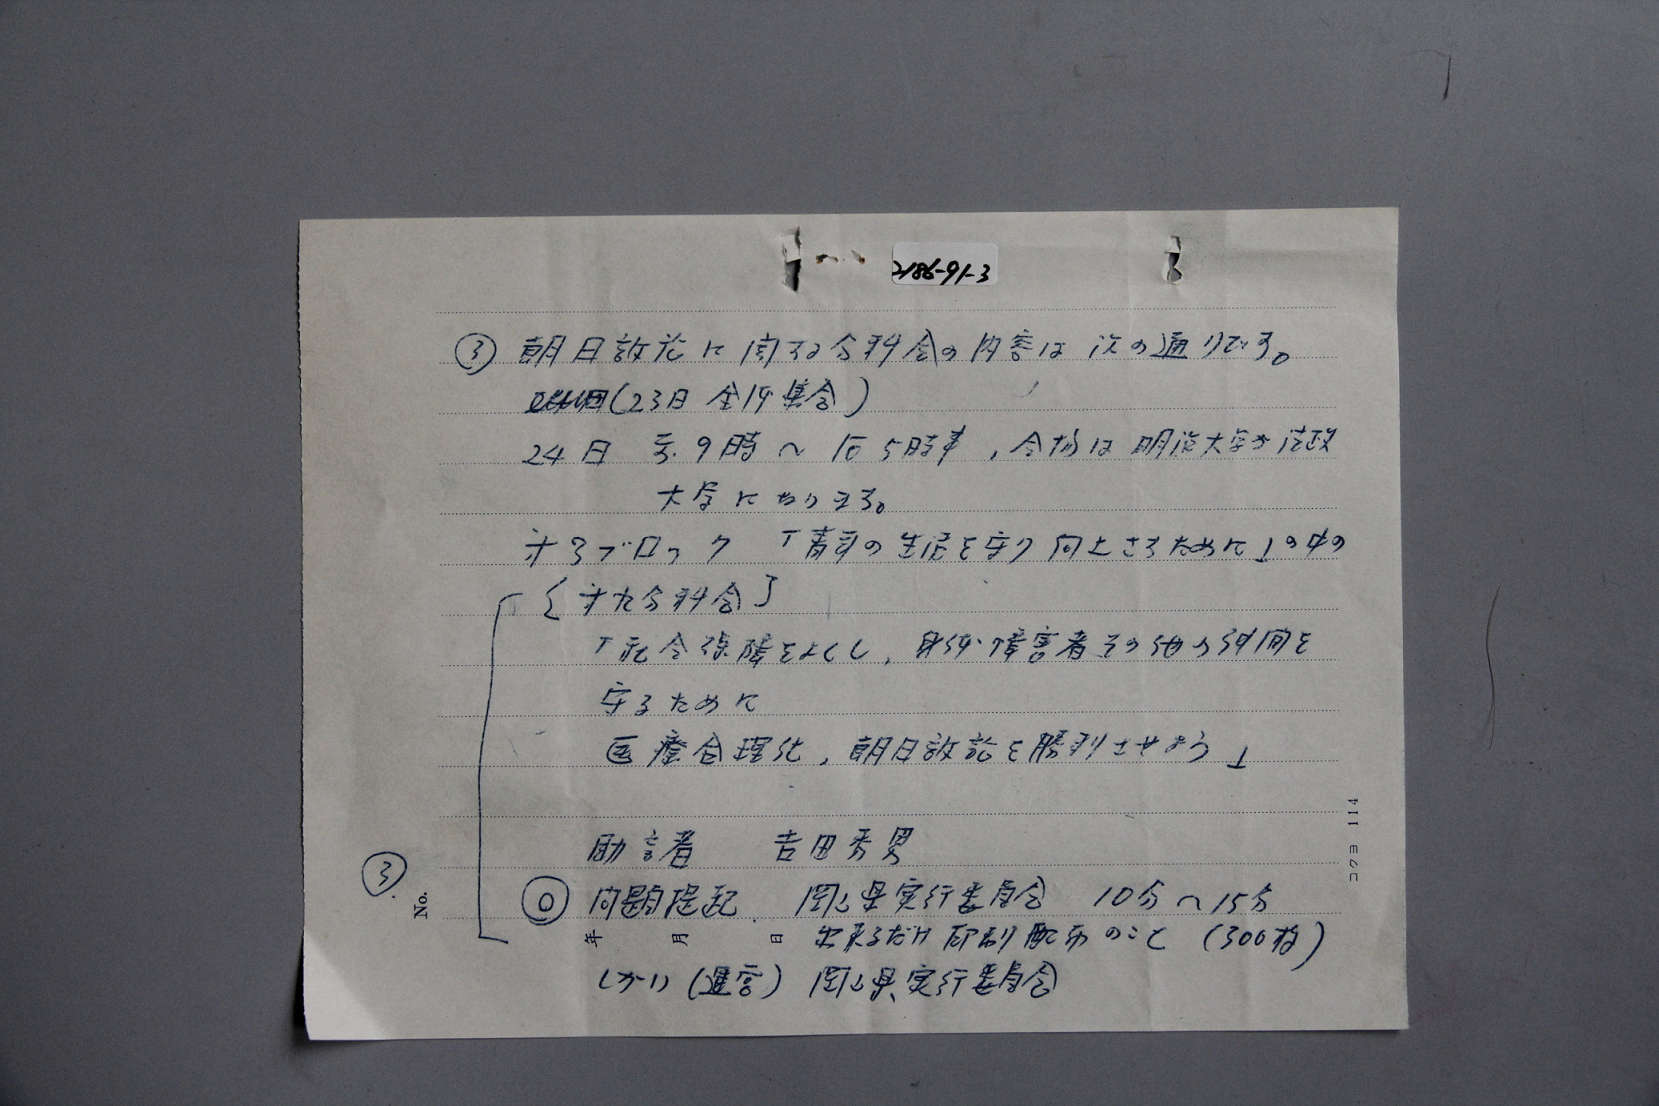 2186-91-3
③ 朝日訴訟に関する分科会の内容は次の通りです。
(23日 全体集会)
24日 9時〜 5時半、会場は明治大学か法政
大学になります。
オ3ブロック 「青年の生活を守り向上させるために」の中の
[オ九分科会]
「社会保障をよくし、身体障害者その他の仲間を
守るために
医療合理化、朝日訴訟を勝利させよう」
助言者 吉田秀男
◎ 問題提起 岡山県実行委員会 10分〜15分
出来るだけ印刷配布のこと (300枚)
しかい(運営) 岡山県実行委員会
③
No.
年 月 日
コクヨ 114